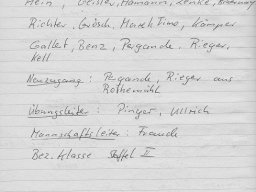 Hein, Geisler, Hamann, Zenke,
Richter, Grösch, Marek Timo, Kämper
Gallet, Benz, Pergande, Rieger,
Kell
Neuzugang: Pergande, Rieger aus
Rothemühl
Übungsleiter: Pinger, Ullrich
Mannschaftsleiter: Freude
Bez. klasse Staffel II